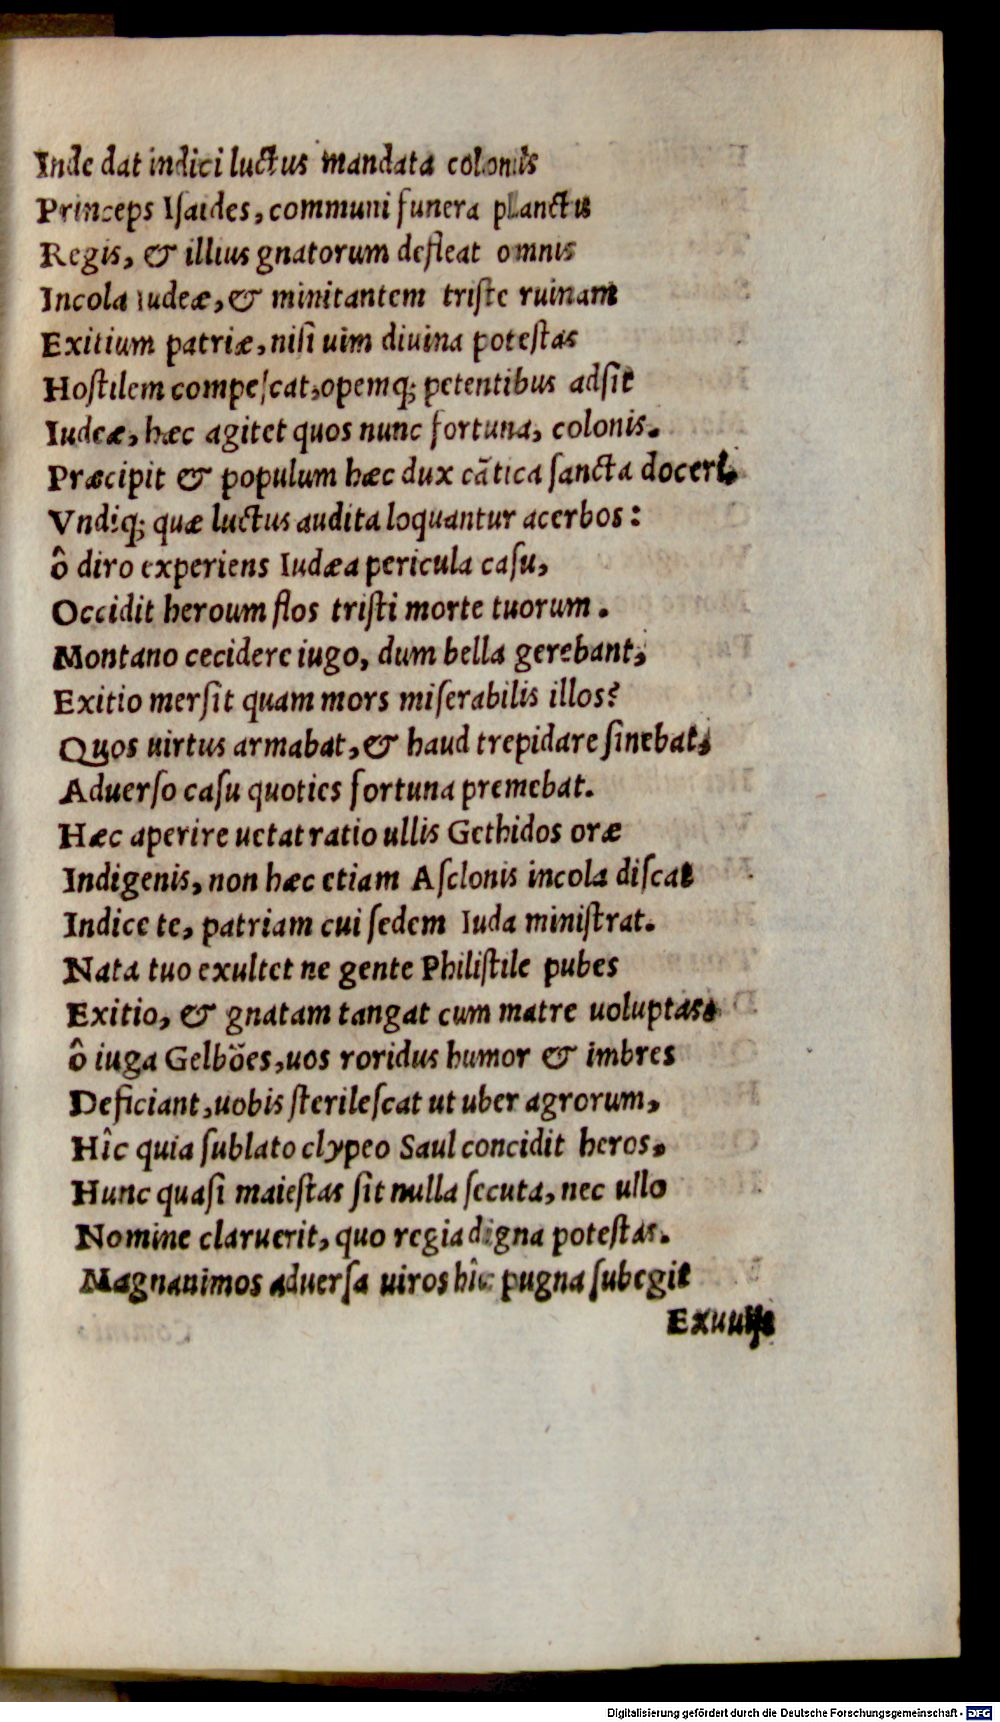 Inde dat indici luctus mandata colonis
Princeps Isaides, communi funera planctu
Regis, & illius gnatorum defleat omnis
Incola iudeæ, & minitantem triste ruinam
Exitium patriæ, nisi uim diuina potestas
Hostilem compescat, opemq; petentibus adsit
Iudeæ, hæc agitet quos nunc fortuna, colonis.
Præcipit & populum hæc dux cãtica sancta doceri,
Vndiq; quæ luctus audita loquantur acerbos:
ô diro experiens Iudæa pericula casu,
Occidit heroum flos tristi morte tuorum.
Montano cecidere iugo, dum bella gerebant,
Exitio mersit quam mors miserabilis illos?
Quos uirtus armabat, & haud trepidare sinebat,
Aduerso casu quoties fortuna premebat.
Hæc aperire uetat ratio ullis Gethidos oræ
Indigenis, non hæc etiam Asclonis incola discat
Indice te, patriam cui sedem Iuda ministrat.
Nata tuo exultet ne gente Philistile pubes
Exitio, & gnatam tangat cum matre uoluptas.
ô iuga Gelböes, uos roridus humor & imbres
Deficiant, uobis sterilescat ut uber agrorum,
Hîc quia sublato clypeo Saul concidit heros,
Hunc quasi maiestas sit nulla secuta, nec ullo
Nomine claruerit, quo regia digna potestas.
Magnanimos aduersa uiros hîc pugna subegit
Digitalisierung gefördert durch die Deutsche Forschungsgemeinschaft - DFG